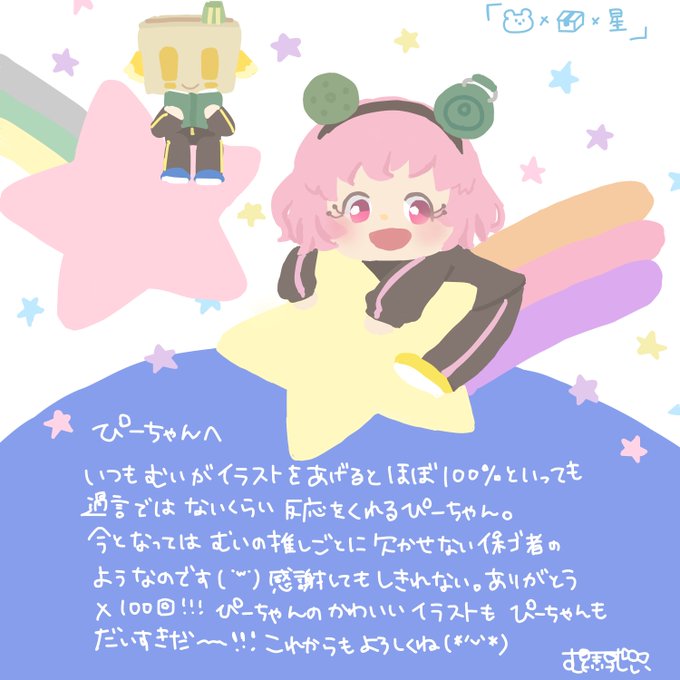 「 × × 星 」
ぴーちゃんへ
いつもむいがイラストをあげるとほぼ100%といっても
過言ではないくらい反応をくれるぴーちゃん。
今となってはむいの推しごとに欠かせない保ゴ者の
ようなのです(¨̮)感謝してもしきれない。ありがとう
×100回!!! ぴーちゃんのかわいいイラストもぴーちゃんも
だいすきだ〜!!! これからもよろしくね(*'ᵕ'*)